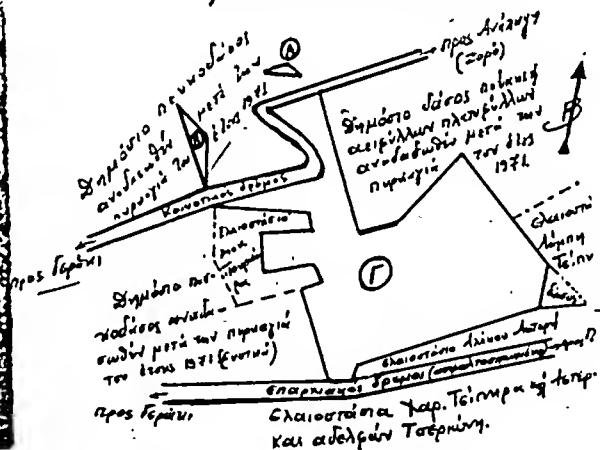 Δημόσιο πευκοδάσος
αναδασωθέν μετά των
πυρκαγιά του έτους 1971
Α
Β
προς Ανάληψη
(Χωριό)
Δημόσιο δάσος πεύκης
αειφύλλων πλατυφύλλων
αναδασωθέν μετά την
πυρκαγιά του έτους
1971.
Β
Κοινοτικός δρόμος
προς Γεράκι
Ελαιοστάσιο
Δημόσιο πευ-
κοδάσος αναδα-
σωθέν μετά την πυρκαγιά
του έτους 1971
Γ
ελαιοστά
δάσος
ελαιοστάσιο
επαρχιακός δρόμος
προς Γεράκι
Ελαιοστάσια Χαρ.
και αδελφών Τσερκώνη.